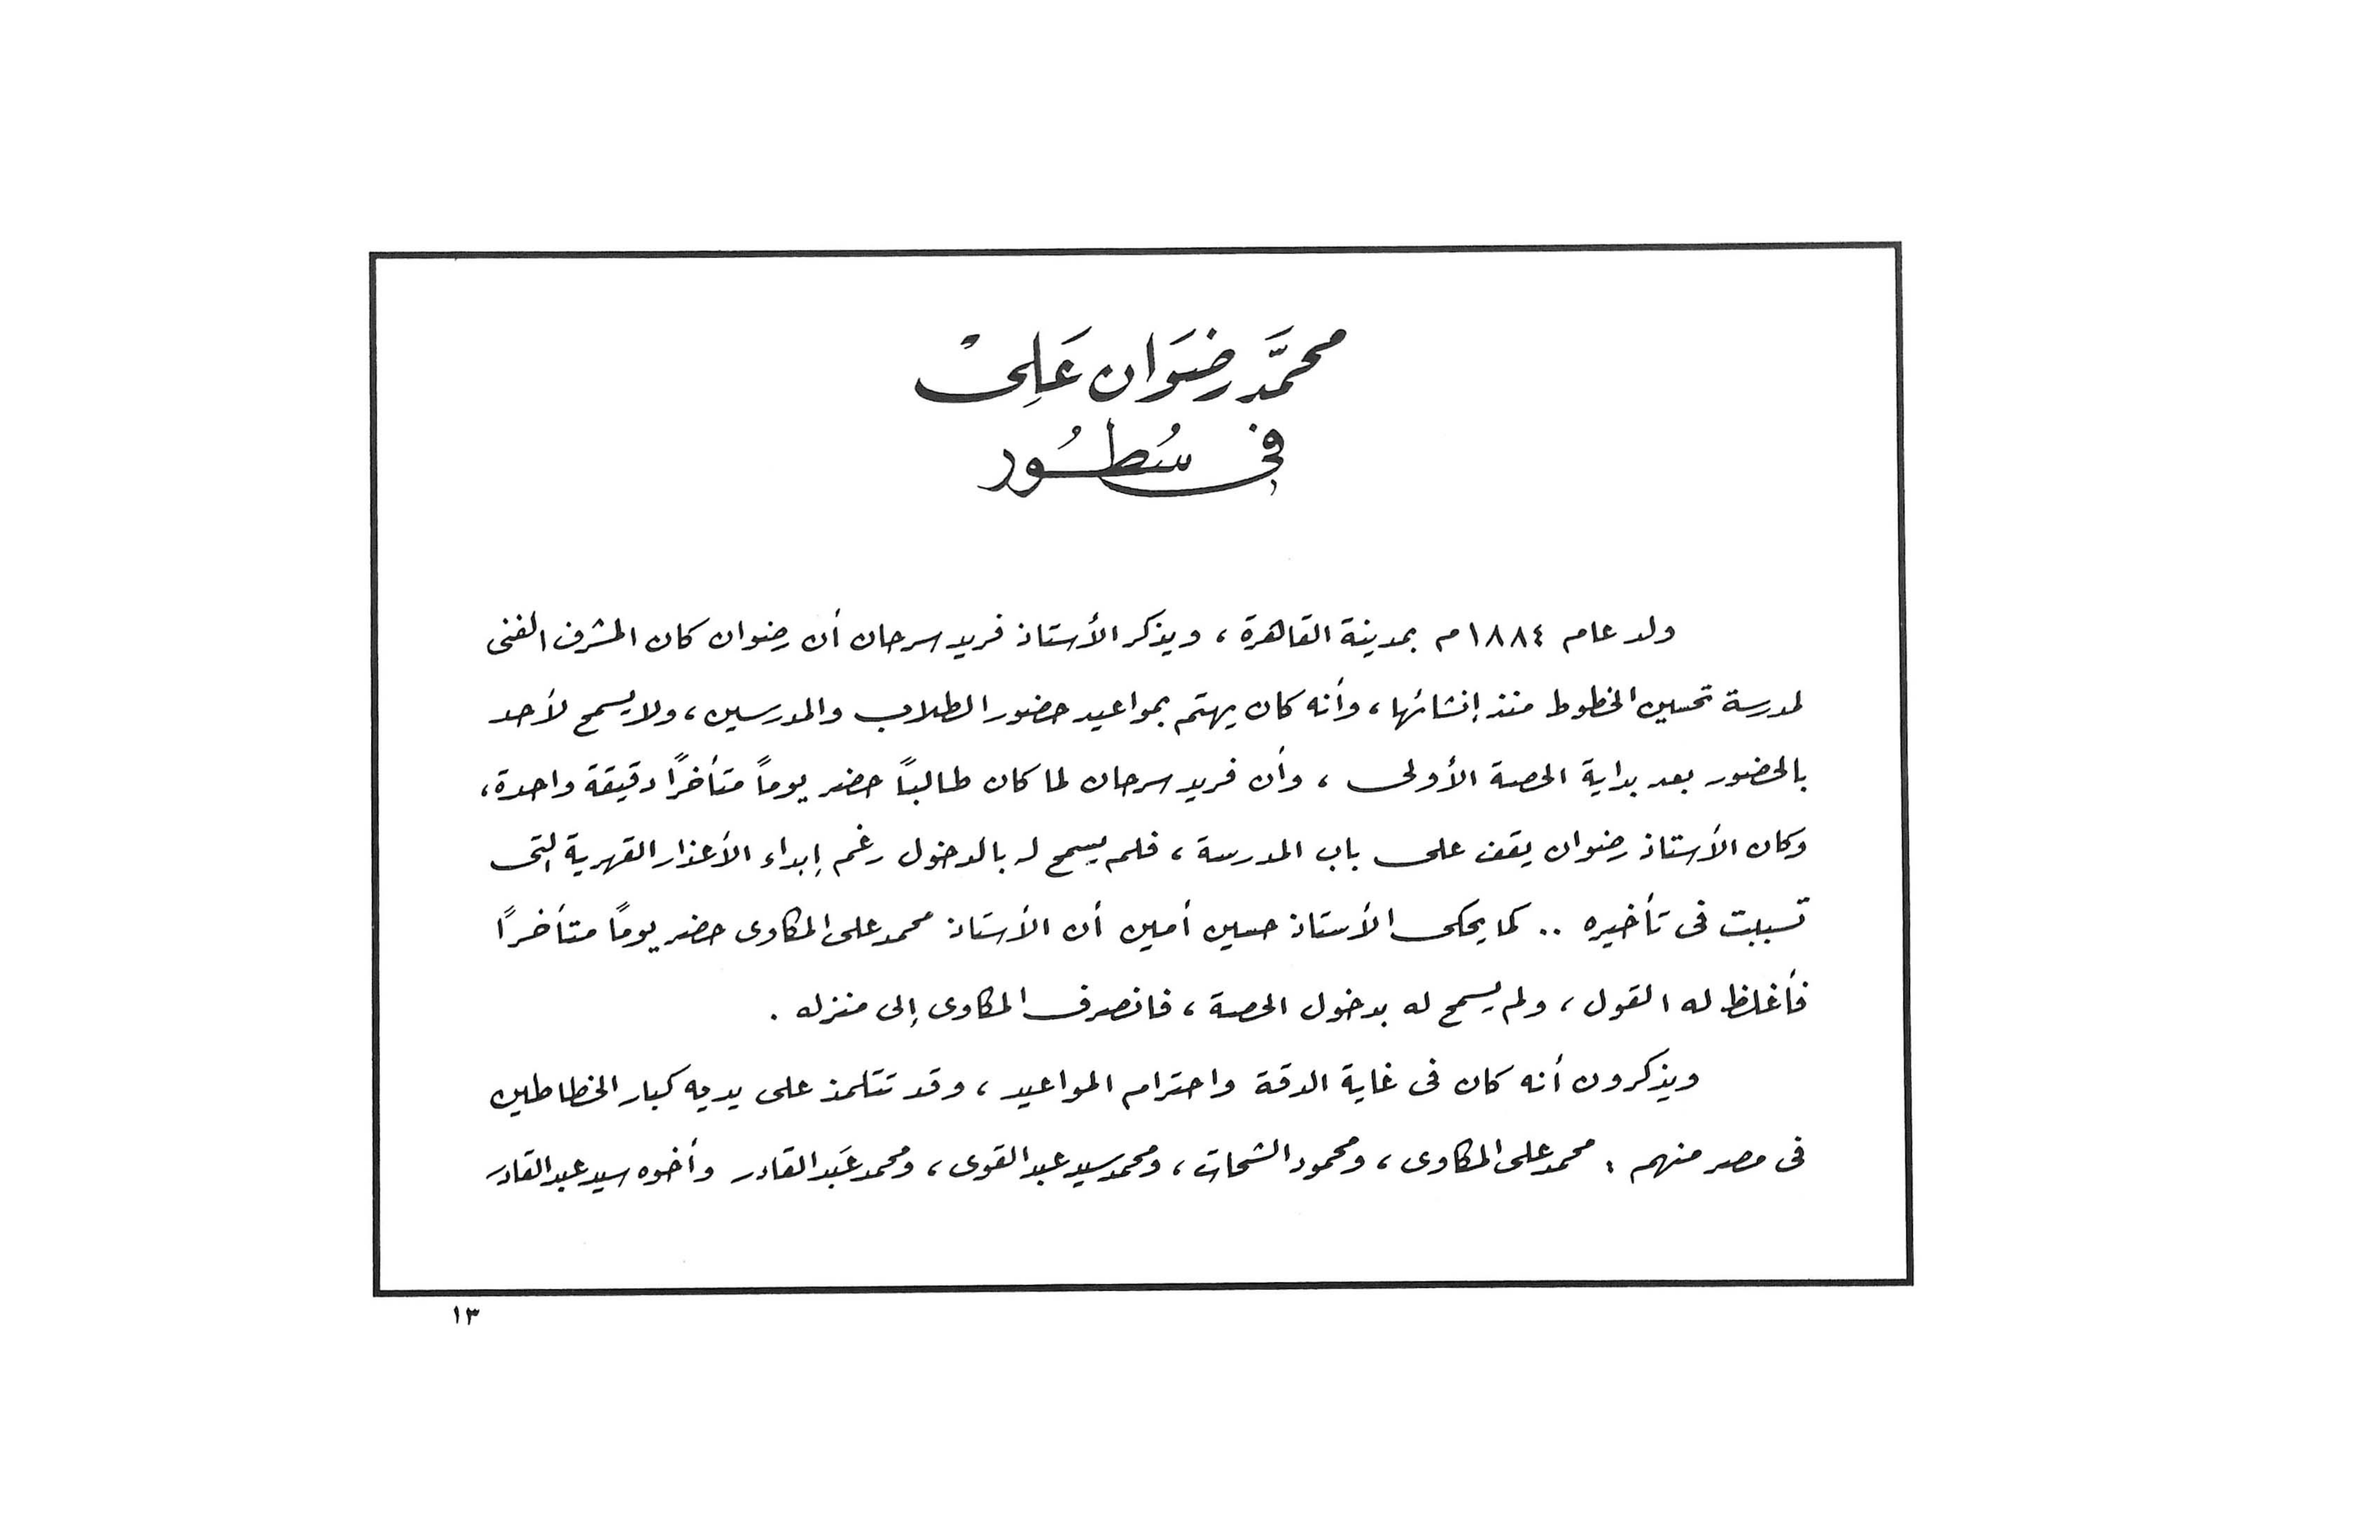 محمَّد رضوَان عَلِىْ
فِى سُطُور
ولد عام ١٨٨٤م بمدينة القاهرة ، ويذكر الأستاذ فريد سرحان أن رضوان كان المشرف الفنى
لمدرسة تحسين الخطوط منذ إنشائها ، وأنه كان يهتم بمواعيد حضور الطلاب والمدرسين ، ولا يسمح لأحد
بالحضور بعد بداية الحصة الأولى ، وأن فريد سرحان لما كان طالباً حضر يوماً متأخراً دقيقة واحدة ،
وكان الأستاذ رضوان يقف على باب المدرسة ، فلم يسمح له بالدخول رغم إبداء الأعذار القهرية التى
تسببت فى تأخيره .. كما يحكى الأستاذ حسين أمين أن الأستاذ محمد على المكاوى حضر يوماً متأخراً
فأغلظ له القول ، ولم يسمح له بدخول الحصة ، فانصرف المكاوى إلى منزله .
ويذكرون أنه كان فى غاية الدقة واحترام المواعيد ، وقد تتلمذ على يديه كبار الخطاطين
فى مصر منهم : محمد على المكاوى ، ومحمود الشحات ، ومحمد سيد عبد القوى ، ومحمد عَبد القادر وأخوه سيد عبد القادر
١٣